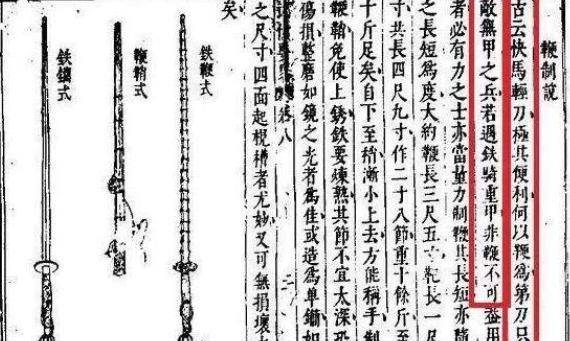 鞭制說
古云快馬輕刀極其便利何以鞭為第刀只
敵無甲之兵若遇鉄騎重甲非鞭不可蓋用
者必有力之士亦當量力制鞭其長短亦隨
之長短為度大約鞭長三尺五寸靶長一尺
寸共長四尺九寸作二十八節重十餘斤至
十斤足矣自下至稍漸小上去方能稱手制
鞭鞘免使上銹鉄要煉熟其節不宜太深恐
傷損整磨如鏡之光者為佳或造為单鐧如
卷八
之尺寸四面起棍槽者尤妙又可無損壞
矣
鉄鞭式
鞭鞘式
鉄鐧式